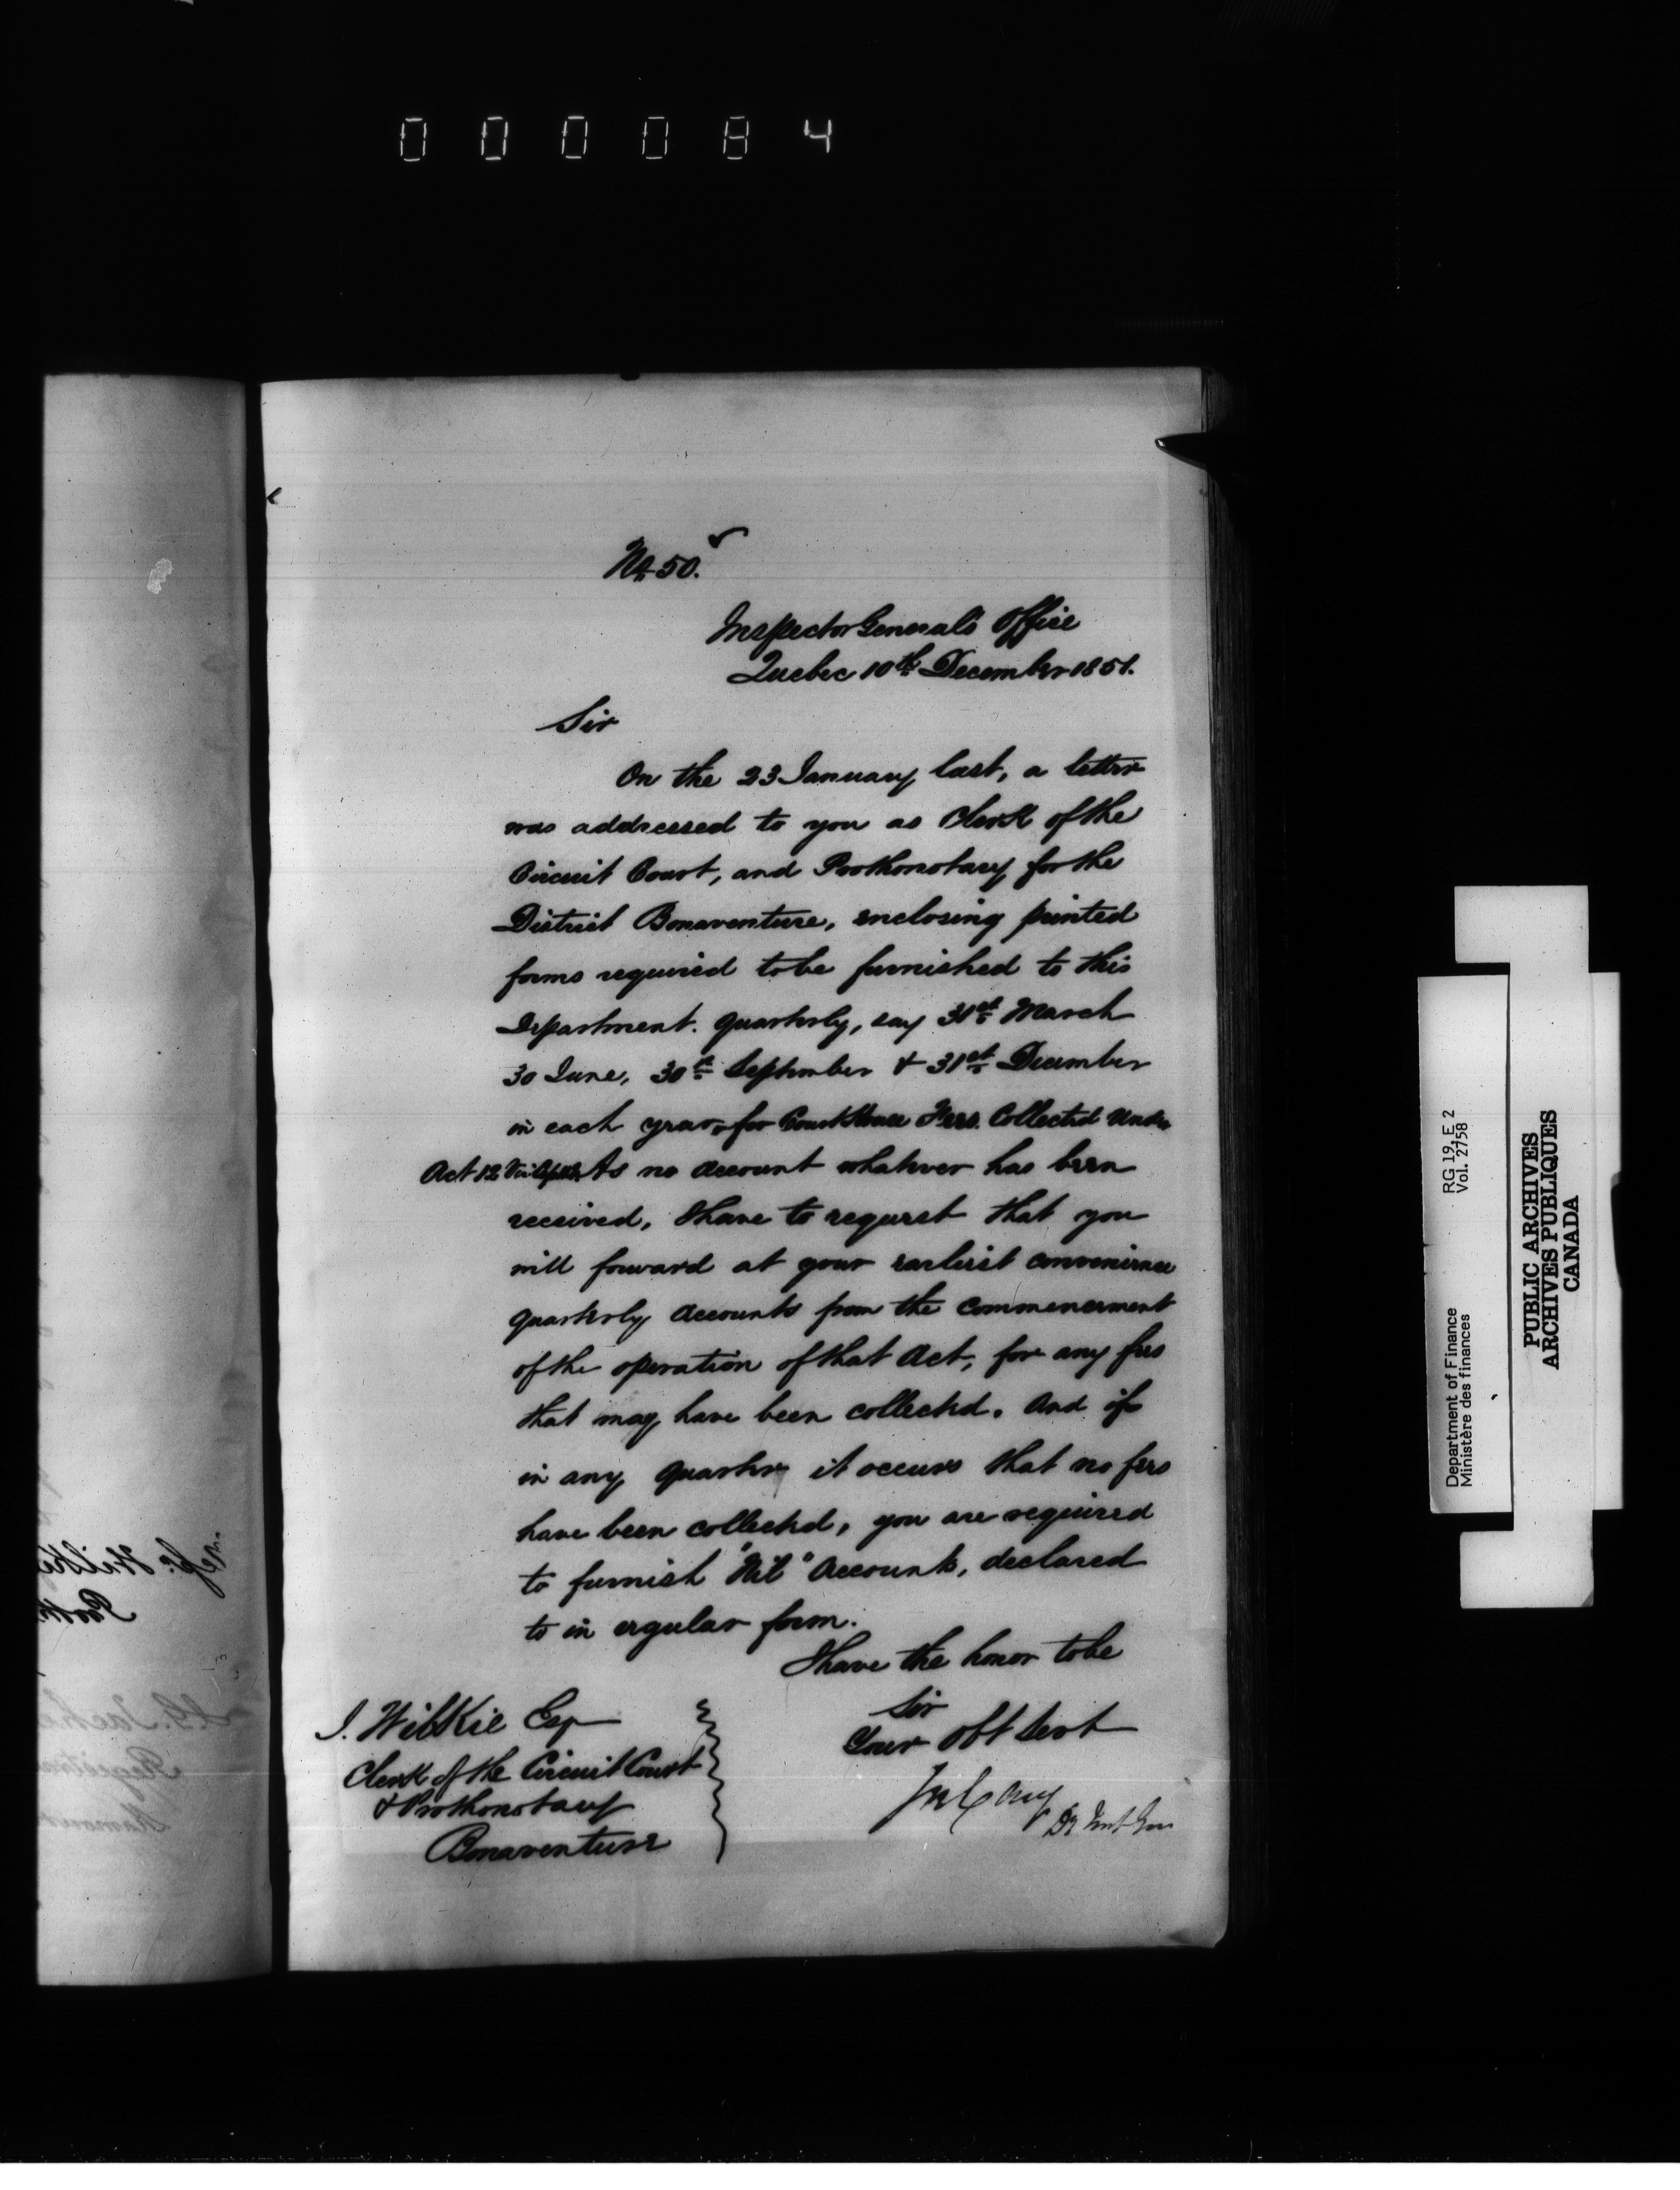 000084
No 50.
Inspector Generals Office
Quebec 10th December 1851.
Sir
On the 23 January last, a letter
was addressed to you as Clerk of the
Circuit Court, and Prothonotary for the
District Bonaventure, enclosing printed
forms required to be furnished to this
Department. quarterly, say 31st March
30 June, 30th September & 31st December
in each year, for Court House Fees. Collected Under
Act 12 Vic As no account whatever has been
received, I have to request that you
will forward at your earliest convenience
quarterly accounts from the commencement
of the operation of that Act, for any fees
that may have been collected. And if
in any quarter it occurs that no fees
have been collected, you are required
to furnish "Nil" Accounts, declared
to in regular form.
I have the honor to be
Sir
Your Obt Servt
Jos Cary
Dy Inst Gen
I. Wilkie Esq
Clerk of the Circuit Court
& Prothonotary
Bonaventure
Department of Finance
Ministère des finances
RG 19, E 2
Vol. 2758
PUBLIC ARCHIVES
ARCHIVES PUBLIQUES
CANADA